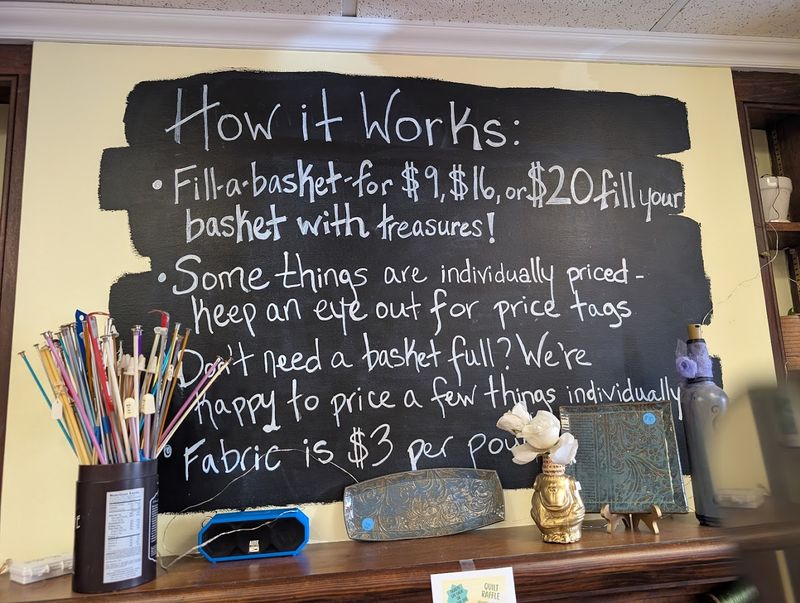 How it Works:
• Fill-a-basket-for $9, $16, or $20 fill your
basket with treasures!
• Some things are individually priced -
keep an eye out for price tags
Don't need a basket full? We're
happy to price a few things individually
• Fabric is $3 per
QUILT
RAFFLE